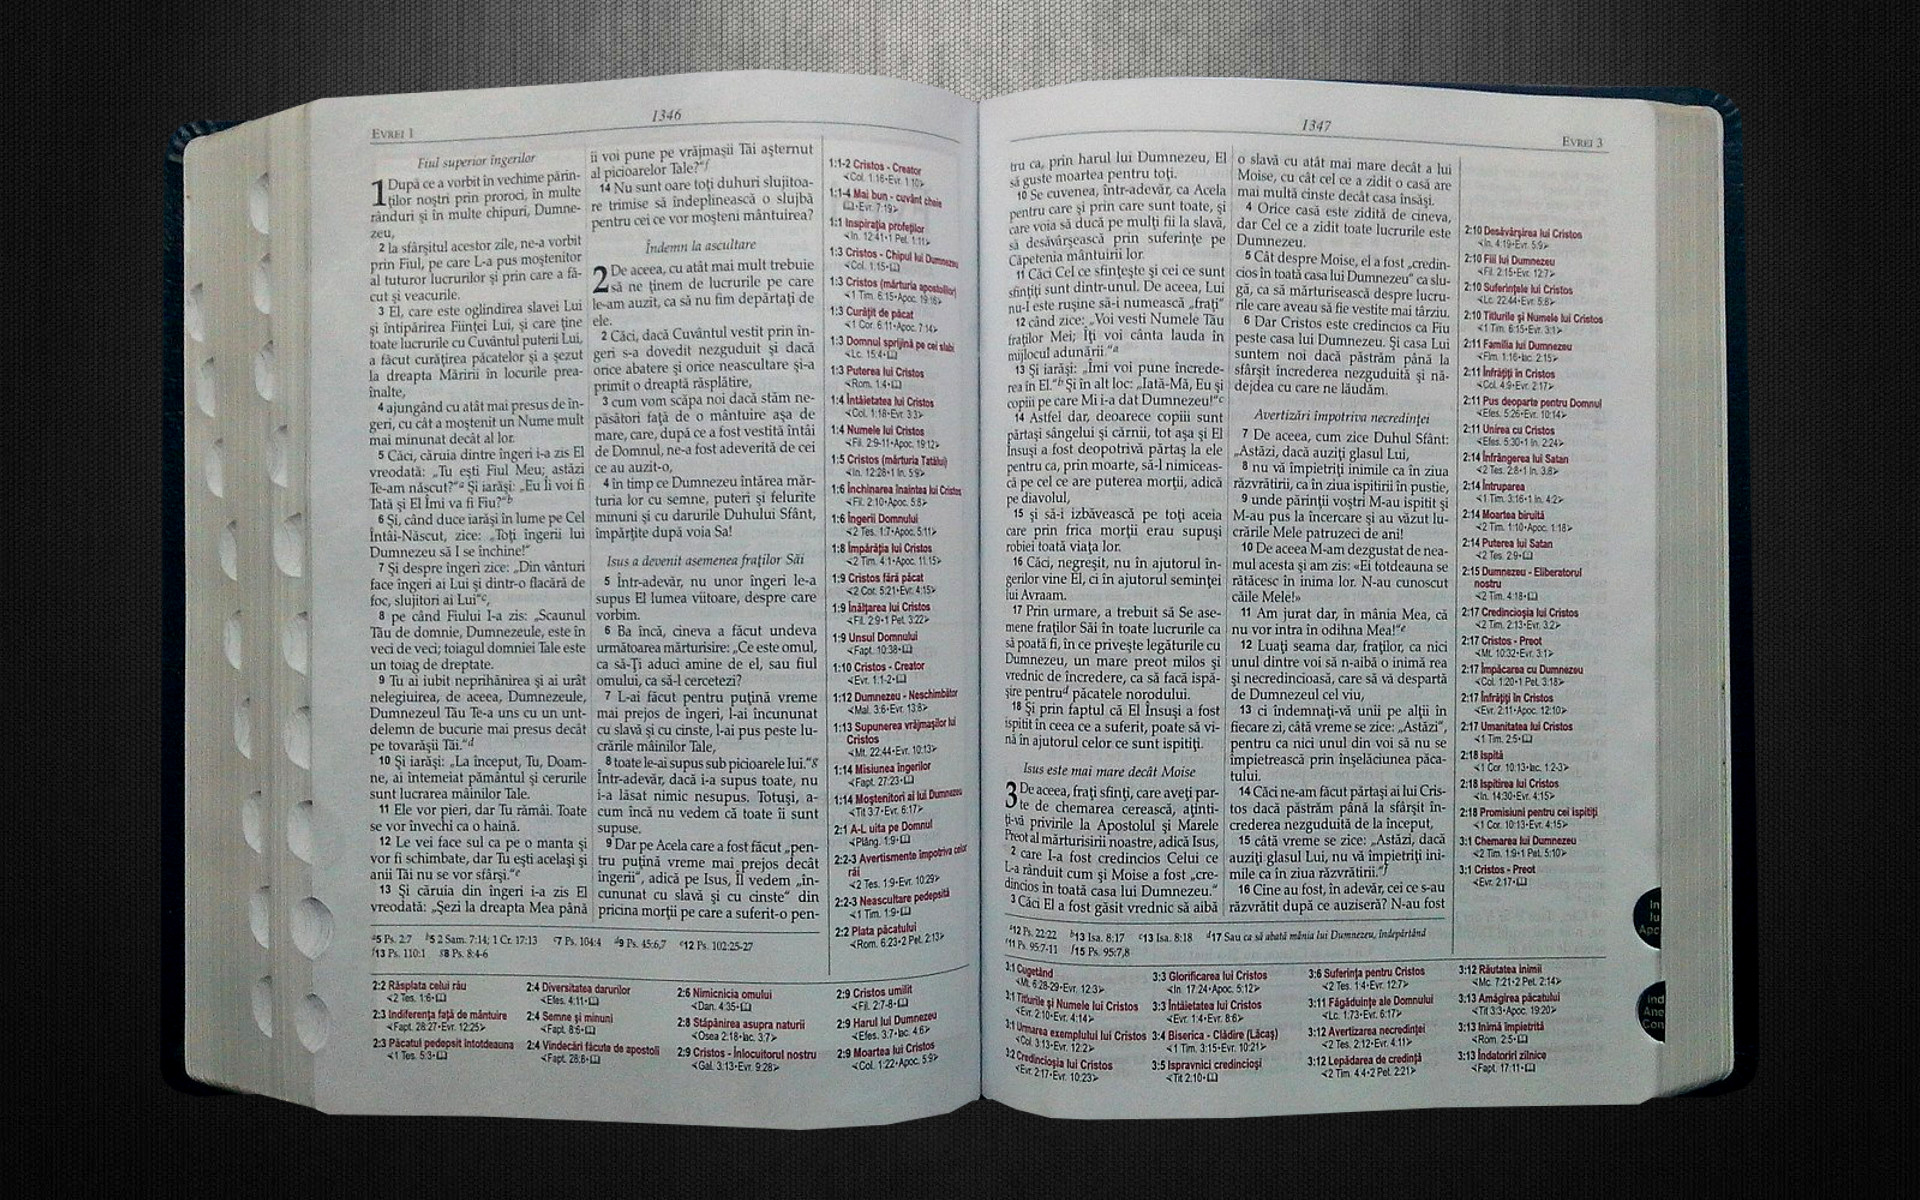 EVREI 1
1346
Fiul superior îngerilor
1 După ce a vorbit în vechime părin-
ţilor noştri prin proroci, în multe
rânduri şi în multe chipuri, Dumne-
zeu,
2 la sfârşitul acestor zile, ne-a vorbit
prin Fiul, pe care L-a pus moştenitor
al tuturor lucrurilor şi prin care a fă-
cut şi veacurile.
3 El, care este oglindirea slavei Lui
şi întipărirea Fiinţei Lui, şi care ţine
toate lucrurile cu Cuvântul puterii Lui,
a făcut curăţirea păcatelor şi a şezut
la dreapta Măririi în locurile prea-
înalte,
4 ajungând cu atât mai presus de în-
geri, cu cât a moştenit un Nume mult
mai minunat decât al lor.
5 Căci, căruia dintre îngeri i-a zis El
vreodată: „Tu eşti Fiul Meu; astăzi
Te-am născut?“a Şi iarăşi: „Eu Îi voi fi
Tată şi El Îmi va fi Fiu?“b
6 Şi, când duce iarăşi în lume pe Cel
Întâi-Născut, zice: „Toţi îngerii lui
Dumnezeu să I se închine!“
7 Şi despre îngeri zice: „Din vânturi
face îngeri ai Lui şi dintr-o flacără de
foc, slujitori ai Lui“c,
8 pe când Fiului I-a zis: „Scaunul
Tău de domnie, Dumnezeule, este în
veci de veci; toiagul domniei Tale este
un toiag de dreptate.
9 Tu ai iubit neprihănirea şi ai urât
nelegiuirea, de aceea, Dumnezeule,
Dumnezeul Tău Te-a uns cu un unt-
delemn de bucurie mai presus decât
pe tovarăşii Tăi.“d
10 Şi iarăşi: „La început, Tu, Doam-
ne, ai întemeiat pământul şi cerurile
sunt lucrarea mâinilor Tale.
11 Ele vor pieri, dar Tu rămâi. Toate
se vor învechi ca o haină.
12 Le vei face sul ca pe o manta şi
vor fi schimbate, dar Tu eşti acelaşi şi
anii Tăi nu se vor sfârşi.“e
13 Şi căruia din îngeri i-a zis El
vreodată: „Şezi la dreapta Mea până
îi voi pune pe vrăjmaşii Tăi aşternut
al picioarelor Tale?“f
14 Nu sunt oare toţi duhuri slujitoa-
re trimise să îndeplinească o slujbă
pentru cei ce vor moşteni mântuirea?
Îndemn la ascultare
2 De aceea, cu atât mai mult trebuie
să ne ţinem de lucrurile pe care
le-am auzit, ca să nu fim depărtaţi de
ele.
2 Căci, dacă Cuvântul vestit prin în-
geri s-a dovedit nezguduit şi dacă
orice abatere şi orice neascultare şi-a
primit o dreaptă răsplătire,
3 cum vom scăpa noi dacă stăm ne-
păsători faţă de o mântuire aşa de
mare, care, după ce a fost vestită întâi
de Domnul, ne-a fost adeverită de cei
ce au auzit-o,
4 în timp ce Dumnezeu întărea măr-
turia lor cu semne, puteri şi felurite
minuni şi cu darurile Duhului Sfânt,
împărţite după voia Sa!
Isus a devenit asemenea fraţilor Săi
5 Într-adevăr, nu unor îngeri le-a
supus El lumea viitoare, despre care
vorbim.
6 Ba încă, cineva a făcut undeva
următoarea mărturisire: „Ce este omul,
ca să-Ţi aduci amine de el, sau fiul
omului, ca să-l cercetezi?
7 L-ai făcut pentru puţină vreme
mai prejos de îngeri, l-ai încununat
cu slavă şi cu cinste, l-ai pus peste lu-
crările mâinilor Tale,
8 toate le-ai supus sub picioarele lui.“g
Într-adevăr, dacă i-a supus toate, nu
i-a lăsat nimic nesupus. Totuşi, a-
cum încă nu vedem că toate îi sunt
supuse.
9 Dar pe Acela care a fost făcut „pen-
tru puţină vreme mai prejos decât
îngerii“, adică pe Isus, Îl vedem „în-
cununat cu slavă şi cu cinste“ din
pricina morţii pe care a suferit-o pen-
1:1-2 Cristos - Creator
<Col. 1:16•Evr. 1:10>
1:1-4 Mai bun - cuvânt cheie
•Evr. 7:19>
1:1 Inspiraţia profeţilor
<In. 12:41•1 Pet. 1:11>
1:3 Cristos - Chipul lui Dumnezeu
<Col. 1:15•
1:3 Cristos (mărturia apostolilor)
<1 Tim. 6:15•Apoc. 19:16>
1:3 Curăţit de păcat
<1 Cor. 6:11•Apoc. 7:14>
1:3 Domnul sprijină pe cei slabi
<Lc. 15:4•
1:3 Puterea lui Cristos
<Rom. 1:4•
1:4 Întâietatea lui Cristos
<Col. 1:18•Evr. 3:3>
1:4 Numele lui Cristos
<Fil. 2:9-11•Apoc. 19:12>
1:5 Cristos (mărturia Tatălui)
<In. 12:28•1 In. 5:9>
1:6 Închinarea înaintea lui Cristos
<Fil. 2:10•Apoc. 5:8>
1:6 Îngerii Domnului
<2 Tes. 1:7•Apoc. 5:11>
1:8 Împărăţia lui Cristos
<2 Tim. 4:1•Apoc. 11:15>
1:9 Cristos fără păcat
<2 Cor. 5:21•Evr. 4:15>
1:9 Înălţarea lui Cristos
<Fil. 2:9•1 Pet. 3:22>
1:9 Unsul Domnului
<Fapt. 10:38•
1:10 Cristos - Creator
<Evr. 1:1-2•
1:12 Dumnezeu - Neschimbător
<Mal. 3:6•Evr. 13:8>
1:13 Supunerea vrăjmaşilor lui
Cristos
<Mt. 22:44•Evr. 10:13>
1:14 Misiunea îngerilor
<Fapt. 27:23•
1:14 Moştenitori ai lui Dumnezeu
<Tit 3:7•Evr. 6:17>
2:1 A-L uita pe Domnul
<Plâng. 1:9•
2:2-3 Avertismente împotriva celor
răi
<2 Tes. 1:9•Evr. 10:29>
2:2-3 Neascultare pedepsită
<1 Tim. 1:9•
2:2 Plata păcatului
<Rom. 6:23•2 Pet. 2:13>
a5 Ps. 2:7 b5 2 Sam. 7:14; 1 Cr. 17:13 c7 Ps. 104:4 d9 Ps. 45:6,7 e12 Ps. 102:25-27
f13 Ps. 110:1 g8 Ps. 8:4-6
2:2 Răsplata celui rău
<2 Tes. 1:6•
2:3 Indiferenţa faţă de mântuire
<Fapt. 28:27•Evr. 12:25>
2:3 Păcatul pedepsit întotdeauna
<1 Tes. 5:3•
2:4 Diversitatea darurilor
<Efes. 4:11•
2:4 Semne şi minuni
<Fapt. 8:6•
2:4 Vindecări făcute de apostoli
<Fapt. 28:8•
2:6 Nimicnicia omului
<Dan. 4:35•
2:8 Stăpânirea asupra naturii
<Osea 2:18•Iac. 3:7>
2:9 Cristos - Înlocuitorul nostru
<Gal. 3:13•Evr. 9:28>
2:9 Cristos umilit
<Fil. 2:7-8•
2:9 Harul lui Dumnezeu
<Efes. 3:7•Iac. 4:6>
2:9 Moartea lui Cristos
<Col. 1:22•Apoc. 5:9>
1347
EVREI 3
tru ca, prin harul lui Dumnezeu, El
să guste moartea pentru toţi.
10 Se cuvenea, într-adevăr, ca Acela
pentru care şi prin care sunt toate, şi
care voia să ducă pe mulţi fii la slavă,
să desăvârşească prin suferinţe pe
Căpetenia mântuirii lor.
11 Căci Cel ce sfinţeşte şi cei ce sunt
sfinţiţi sunt dintr-unul. De aceea, Lui
nu-I este ruşine să-i numească „fraţi“
12 când zice: „Voi vesti Numele Tău
fraţilor Mei; Îţi voi cânta lauda în
mijlocul adunării.“a
13 Şi iarăşi: „Îmi voi pune încrede-
rea în El.“b Şi în alt loc: „Iată-Mă, Eu şi
copiii pe care Mi i-a dat Dumnezeu!“c
14 Astfel dar, deoarece copiii sunt
părtaşi sângelui şi cărnii, tot aşa şi El
Însuşi a fost deopotrivă părtaş la ele
pentru ca, prin moarte, să-l nimiceas-
că pe cel ce are puterea morţii, adică
pe diavolul,
15 şi să-i izbăvească pe toţi aceia
care prin frica morţii erau supuşi
robiei toată viaţa lor.
16 Căci, negreşit, nu în ajutorul în-
gerilor vine El, ci în ajutorul seminţei
lui Avraam.
17 Prin urmare, a trebuit să Se ase-
mene fraţilor Săi în toate lucrurile ca
să poată fi, în ce priveşte legăturile cu
Dumnezeu, un mare preot milos şi
vrednic de încredere, ca să facă ispă-
şire pentrud păcatele norodului.
18 Şi prin faptul că El Însuşi a fost
ispitit în ceea ce a suferit, poate să vi-
nă în ajutorul celor ce sunt ispitiţi.
Isus este mai mare decât Moise
3 De aceea, fraţi sfinţi, care aveţi par-
te de chemarea cerească, aţinti-
ţi-vă privirile la Apostolul şi Marele
Preot al mărturisirii noastre, adică Isus,
2 care I-a fost credincios Celui ce
L-a rânduit cum şi Moise a fost „cre-
dincios în toată casa lui Dumnezeu.“
3 Căci El a fost găsit vrednic să aibă
o slavă cu atât mai mare decât a lui
Moise, cu cât cel ce a zidit o casă are
mai multă cinste decât casa însăşi.
4 Orice casă este zidită de cineva,
dar Cel ce a zidit toate lucrurile este
Dumnezeu.
5 Cât despre Moise, el a fost „credin-
cios în toată casa lui Dumnezeu“ ca slu-
gă, ca să mărturisească despre lucru-
rile care aveau să fie vestite mai târziu.
6 Dar Cristos este credincios ca Fiu
peste casa lui Dumnezeu. Şi casa Lui
suntem noi dacă păstrăm până la
sfârşit încrederea nezguduită şi nă-
dejdea cu care ne lăudăm.
Avertizări împotriva necredinţei
7 De aceea, cum zice Duhul Sfânt:
„Astăzi, dacă auziţi glasul Lui,
8 nu vă împietriţi inimile ca în ziua
răzvrătirii, ca în ziua ispitirii în pustie,
9 unde părinţii voştri M-au ispitit şi
M-au pus la încercare şi au văzut lu-
crările Mele patruzeci de ani!
10 De aceea M-am dezgustat de nea-
mul acesta şi am zis: «Ei totdeauna se
rătăcesc în inima lor. N-au cunoscut
căile Mele!»
11 Am jurat dar, în mânia Mea, că
nu vor intra în odihna Mea!“e
12 Luaţi seama dar, fraţilor, ca nici
unul dintre voi să n-aibă o inimă rea
şi necredincioasă, care să vă despartă
de Dumnezeul cel viu,
13 ci îndemnaţi-vă unii pe alţii în
fiecare zi, câtă vreme se zice: „Astăzi“,
pentru ca nici unul din voi să nu se
împietrească prin înşelăciunea păca-
tului.
14 Căci ne-am făcut părtaşi ai lui Cris-
tos dacă păstrăm până la sfârşit în-
crederea nezguduită de la început,
15 câtă vreme se zice: „Astăzi, dacă
auziţi glasul Lui, nu vă împietriţi ini-
mile ca în ziua răzvrătirii.“f
16 Cine au fost, în adevăr, cei ce s-au
răzvrătit după ce auziseră? N-au fost
2:10 Desăvârşirea lui Cristos
<In. 4:19•Evr. 5:9>
2:10 Fiii lui Dumnezeu
<Fil. 2:15•Evr. 12:7>
2:10 Suferinţele lui Cristos
<Lc. 22:44•Evr. 5:8>
2:10 Titlurile şi Numele lui Cristos
<1 Tim. 6:15•Evr. 3:1>
2:11 Familia lui Dumnezeu
<Flm. 1:16•Iac. 2:15>
2:11 Înfrăţiţi în Cristos
<Col. 4:9•Evr. 2:17>
2:11 Pus deoparte pentru Domnul
<Efes. 5:26•Evr. 10:14>
2:11 Unirea cu Cristos
<Efes. 5:30•1 In. 2:24>
2:14 Înfrângerea lui Satan
<2 Tes. 2:8•1 In. 3:8>
2:14 Întruparea
<1 Tim. 3:16•1 In. 4:2>
2:14 Moartea biruită
<2 Tim. 1:10•Apoc. 1:18>
2:14 Puterea lui Satan
<2 Tes. 2:9•
2:15 Dumnezeu - Eliberatorul
nostru
<2 Tim. 4:18•
2:17 Credincioşia lui Cristos
<2 Tim. 2:13•Evr. 3:2>
2:17 Cristos - Preot
<Mt. 10:32•Evr. 3:1>
2:17 Împăcarea cu Dumnezeu
<Col. 1:20•1 Pet. 3:18>
2:17 Înfrăţiţi în Cristos
<Evr. 2:11•Apoc. 12:10>
2:17 Umanitatea lui Cristos
<1 Tim. 2:5•
2:18 Ispită
<1 Cor. 10:13•Iac. 1:2-3>
2:18 Ispitirea lui Cristos
<In. 14:30•Evr. 4:15>
2:18 Promisiuni pentru cei ispitiţi
<1 Cor. 10:13•Evr. 4:15>
3:1 Chemarea lui Dumnezeu
<2 Tim. 1:9•1 Pet. 5:10>
3:1 Cristos - Preot
<Evr. 2:17•
a12 Ps. 22:22 b13 Isa. 8:17 c13 Isa. 8:18 d17 Sau ca să abată mânia lui Dumnezeu, îndepărtând
e11 Ps. 95:7-11 f15 Ps. 95:7,8
3:1 Cugetând
<Mt. 6:28-29•Evr. 12:3>
3:1 Titlurile şi Numele lui Cristos
<Evr. 2:10•Evr. 4:14>
3:1 Urmarea exemplului lui Cristos
<Col. 3:13•Evr. 12:2>
3:2 Credincioşia lui Cristos
<Evr. 2:17•Evr. 10:23>
3:3 Glorificarea lui Cristos
<In. 17:24•Apoc. 5:12>
3:3 Întâietatea lui Cristos
<Evr. 1:4•Evr. 8:6>
3:4 Biserica - Clădire (Lăcaş)
<1 Tim. 3:15•Evr. 10:21>
3:5 Ispravnici credincioşi
<Tit 2:10•
3:6 Suferinţa pentru Cristos
<2 Tes. 1:4•Evr. 12:7>
3:11 Făgăduinţe ale Domnului
<Lc. 1:73•Evr. 6:17>
3:12 Avertizarea necredinţei
<2 Tes. 2:12•Evr. 4:11>
3:12 Lepădarea de credinţă
<2 Tim. 4:4•2 Pet. 2:21>
3:12 Răutatea inimii
<Mc. 7:21•2 Pet. 2:14>
3:13 Amăgirea păcatului
<Tit 3:3•Apoc. 19:20>
3:13 Inimă împietrită
<Rom. 2:5•
3:13 Îndatoriri zilnice
<Fapt. 17:11•
In
Iu
Apc
Ind
Ane
Con